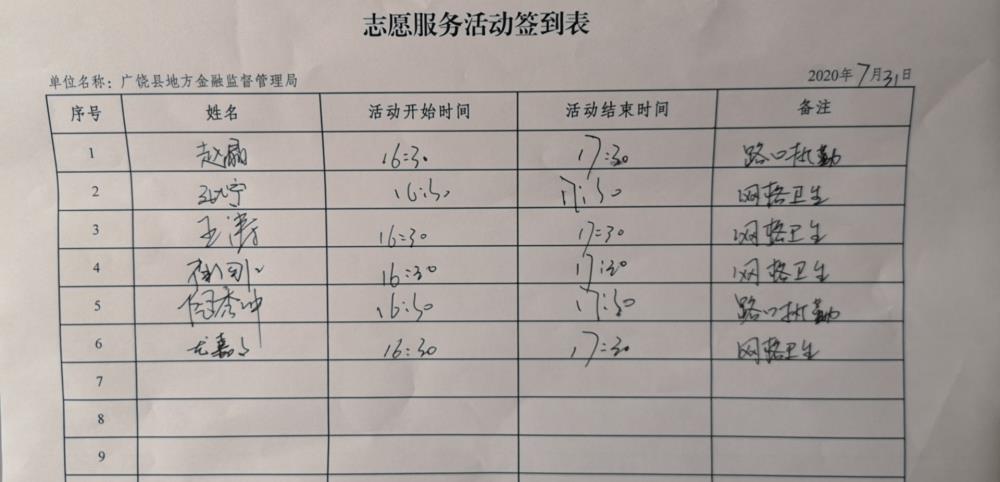 志愿服务活动签到表
单位名称：广饶县地方金融监督管理局 2020年7月31日
序号 姓名 活动开始时间 活动结束时间 备注
1 赵晶 16:30 17:30 路口执勤
2 16:30 17:30 网格卫生
3 王涛 16:30 17:30 网格卫生
4 16:30 17:30 网格卫生
5 16:30 17:30 路口执勤
6 16:30 17:30 网格卫生
7
8
9